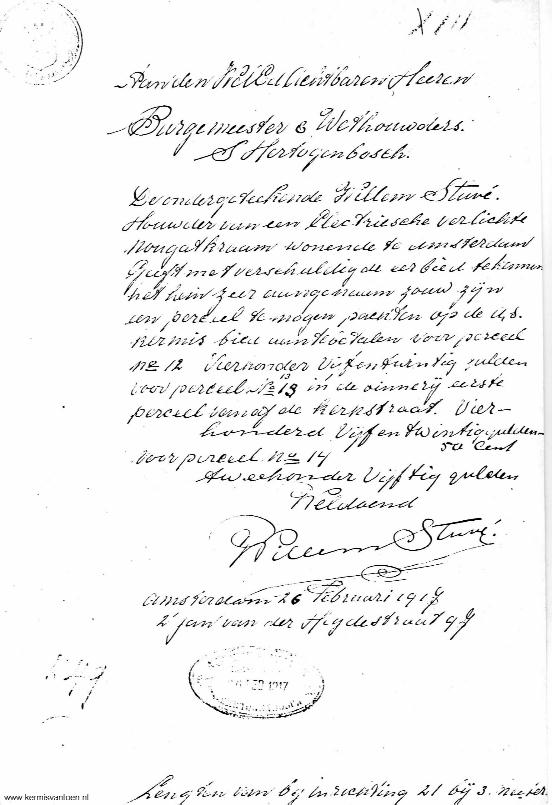 XIII
Aan den WelEdelachtbaren Heeren
Burgemeester & Wethouwders.
S Hertogenbosch.
De ondergeteekende Willem Stuvé.
Houwder van een Electriesche verlichte
Nougathkraam wonende te Amsterdam
Geeft met verschuldigde eerbied te kennen
het hem zeer aangenaam zouw zijn
een perceel te mogen pachten op de a,s.
kermis bied aan te betalen voor perceel
no 12 Vierhonder Vijfentwintig gulden
voor perceel No 13 in de eerste
perceel vanaf de Kerkstraat. Vier-
honderd Vijfentwintig gulden
50 Cent
voor perceel no 14
tweehonder Vijftig gulden
Heildoend
Willem Stuvé.
Amsterdam 26 Februari 1917
2e jan van der Heydestraat 97
1917
Lengten van bij inrichting 21 bij 3. meter
www.kermisvantoen.nl